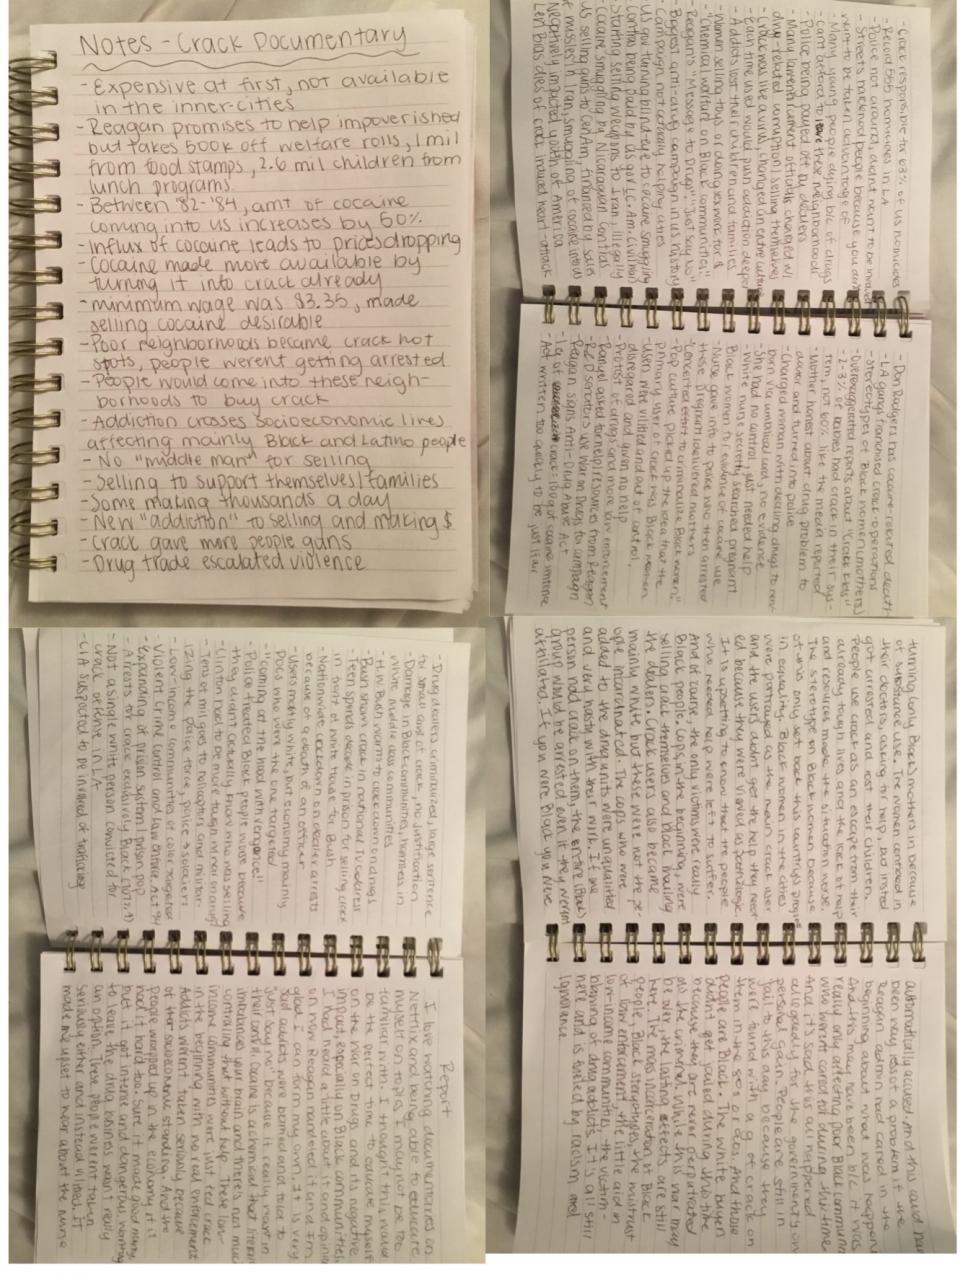 Notes - Crack Documentary
- Expensive at first, not available
in the inner-cities
- Reagan promises to help impoverished
but takes 500k off welfare rolls, 1 mil
from food stamps, 2.6 mil children from
lunch programs.
- Between '82-'84, amt of cocaine
coming into US increases by 60%
- Influx of cocaine leads to prices dropping
- Cocaine made more available by
turning it into crack already
- minimum wage was $3.35, made
selling cocaine desirable
- Poor neighborhoods became crack hot
spots, people werent getting arrested
- People would come into these neigh-
borhoods to buy crack
- Addiction crosses socioeconomic lines
affecting mainly Black and Latino people
- No "middle man" for selling
- Selling to support themselves/families
- Some making thousands a day
- New "addiction" to selling and making $
- Crack gave more people guns
- Drug trade escalated violence
- Crack responsible for 63% of US homicides
- Record 555 homicides in LA
- Police not around, didnt want to be
- Streets hardened people because you dont
want to be taken advantage of
- Many young people dying b/c of drugs
- Cant afford to leave these neighborhoods
- Police being payed off by dealers
- Many law enforcement officials charged w/
drug-related corruption, selling themselves
- Crack was like a virus, changed an entire culture
- Each time used would push addiction deeper
- Addicts lost their children and families
- Women selling toys or doing sex work for $
- "Chemical warfare on Black communities"
- Reagan's "Message to Drugs": "Just Say No"
- Biggest anti-drug campaign in US history
- Campaign not actually helping cities
- US gov turning blind-eye to cocaine smuggling
- Contras being paid by US gov
- Starting selling weapons to Iran, illegally
- Cocaine smuggling by Nicaraguan contras
- US selling guns to
- Negatively impacted youth of America
- Len Bias dies of crack induced heart attack
- Don Rodgers has cocaine-related death
- LA gangs franchised crack-operations
- Stereotypes of Black women/mothers
- Overexaggerated reports about "crack kids"
- 2-3% of babies had crack in their sys-
tem, not 60% like the media reported
- Mother honest about drug problem to
doctor and turned into police
- Charged woman with dealing drugs to new-
born via umbilical cord, no evidence
- She had no control, just needed help
- White nurse secretly searched pregnant
Black women for evidence of cocaine use
- Nurse gave info to police who then arrested
these pregnant/delivered mothers
- "Concerted effort to criminalize Black women"
- Pop culture picked up the idea that the
primary user of crack was Black women
- Users were vilified and out of control,
disregarded and given no help
- Protest of drugs and more law enforcement
- Rangel asked for help/resources from Reagan
- R&D senators use War on Drugs to campaign
- Reagan signs Anti-Drug Abuse Act
- Act written too quickly to be just/fair
- Drug dealers criminalized, large sentence
for small amt of crack, no justification
- Damage in Black communities, homeless in
white, middle class communities
- H.W Bush wants to crack down on drugs
- Bush shows crack in national TV address
- Teen spends decade in prison for selling crack
in front of White House for Bush
- Nationwide crackdown on dealer arrests
because of a death of an officer
- Users mostly white, but economy mainly
POCs who were the one targeted
- "coming at the hood with vengence"
- Police treated Black people worse because
they didn't actually know who was selling
- Clinton had to be more tough w/ war on drugs
- Tens of mil goes to helicopters and militar-
izing the police force, police → soldiers
- Low-income communities of color
- Violent Crime Control and Law Enforce. Act '94
- Expanding of prison system/prison pop
- Arrests for crack exclusively Black
- Not a single white person convicted for
crack offense in LA
- CIA suspected to be involved of trafficking
Report
I love watching documentaries on
Netflix and being able to educate
myself on topics I may not be too
familiar with. I thought this would
be the perfect time to educate myself
on the War on Drugs and its negative
impact, especially on Black communities.
I had heard a little about it and opinions
on how Reagan handled it and I'm
glad I can form my own. It is very
sad addicts were blamed and told to
"just say no" because it really wasn't in
their control. Cocaine is a chemical that literally
imbalances your brain and there's not much
controlling that without help. These low-
income communities were just fed crack
in the beginning with no real enforcement
Addicts weren't taken seriously because
of their socioeconomic standing. And the
people wrapped up in the economy of it
had it hard too. Sure it made good money
but it got intense and dangerous, wanting
to leave the drug business wasn't really
an option. These people weren't taken
seriously either and instead villified. It
made me upset to hear about the nurse
turning only Black mothers in because
of substance use. The women confided in
their doctors, asking for help, but instead
got arrested and lost their children.
People use crack as an escape from their
already tough lives and the lack of help
and resources made the situation worse.
The stereotype on Black women because
of this only set back this country's progress
in equality. Black women in the cities
were portrayed as the main crack user
and the users didn't get the help they need-
ed because they were viewed as
It is upsetting to know that the people
who needed help were left to suffer.
And of course, the only victims were really
Black people. Cops, in the beginning, were
selling crack themselves and Black
the dealers. Crack users also became
mainly white but these were not the pe-
ople incarcerated. The cops who were
added to the drug units were unqualified
and very hasty with their work. If one
person had crack on them, the entire (Black)
group would be arrested even if they weren't
affiliated. If you were Black you were
automatically accused. And this could have
been way less of a problem if the
Reagan admin had cared in the
beginning about what was happening
And this may have been b/c it was
really only affecting poor Black communities
who weren't cared for during this time.
And it's sad this all happened
allegedly for the government's own
personal gain. People are still in
jail to this day because they
were found with a g of crack on
them in the 80s or 90s. And those
people are Black. The white buyers
didn't get jailed during this time
because they are never perpetrated
as the criminal. While this war may
be over, the lasting effects are still
here. The mass incarceration of Black
people, Black stereotypes, the mistrust
of law enforcement, the little aid in
low-income communities, the victim-
blaming of drug addicts. It's all still
here and is fueled by racism and
ignorance.